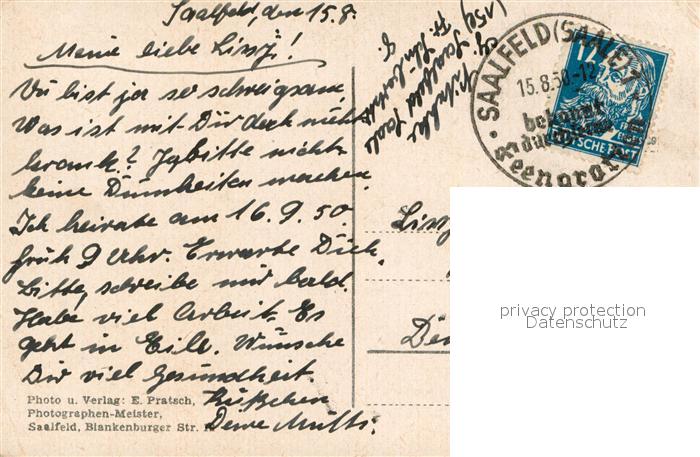 Saalfeld, den 15.8.
Meine liebe Lissj!
Du bist ja so schweigsam.
Was ist mit Dir doch nicht
krank? Ja bitte nicht
keine Dummheiten machen.
Ich heirate am 16.9.50.
früh 9 Uhr. Erwarte Dich.
Bitte, schreibe mir bald.
Habe viel Arbeit. Es
geht in Eile. Wünsche
Dir viel Gesundheit.
Küßchen
Deine Mutti.
Photo u. Verlag: E. Pratsch,
Photographen-Meister,
Saalfeld, Blankenburger Str.
(15a)
Saalfeld Saale
SAALFELD (SAALE) 1
15.8.50.-12
bekannt
durch seine
Feengrotten
12
DEUTSCHE POST
Lissj
privacy protection
Datenschutz